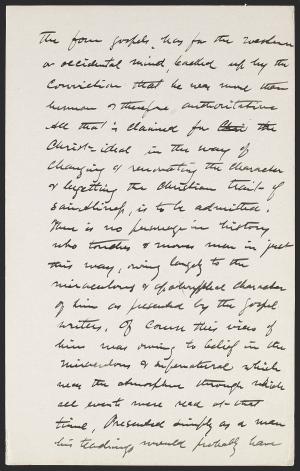 the four gospels, has for the western
or occidental mind, backed up by the
Conviction that he was more than
human & therefore authoritative
All that is claimed for the
Christ-ideal in the way of
Changing & renovating the character
& begetting the Christian traits of
saintliness, is to be admitted.
There is no personage in history
who touches & moves men in just
this way, owing largely to the
miraculous & character
of him as presented by the gospel
writers. Of Course this view of
him was owing to belief in the
miraculous & supernatural which
was the atmosphere through which
all events were read at that
time. Presented simply as a man
his teachings would probably have